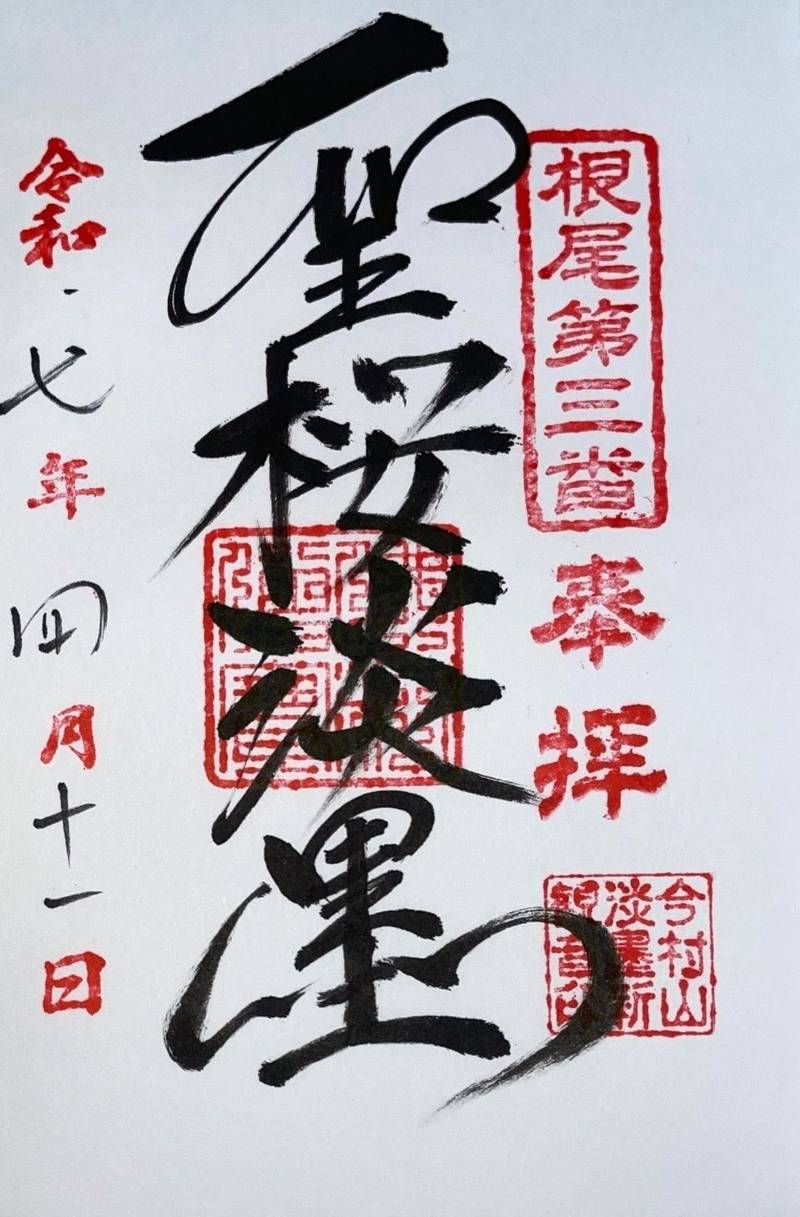 根尾第三番
奉拝
今村山
淡墨
聖桜淡墨
令和七年四月十一日